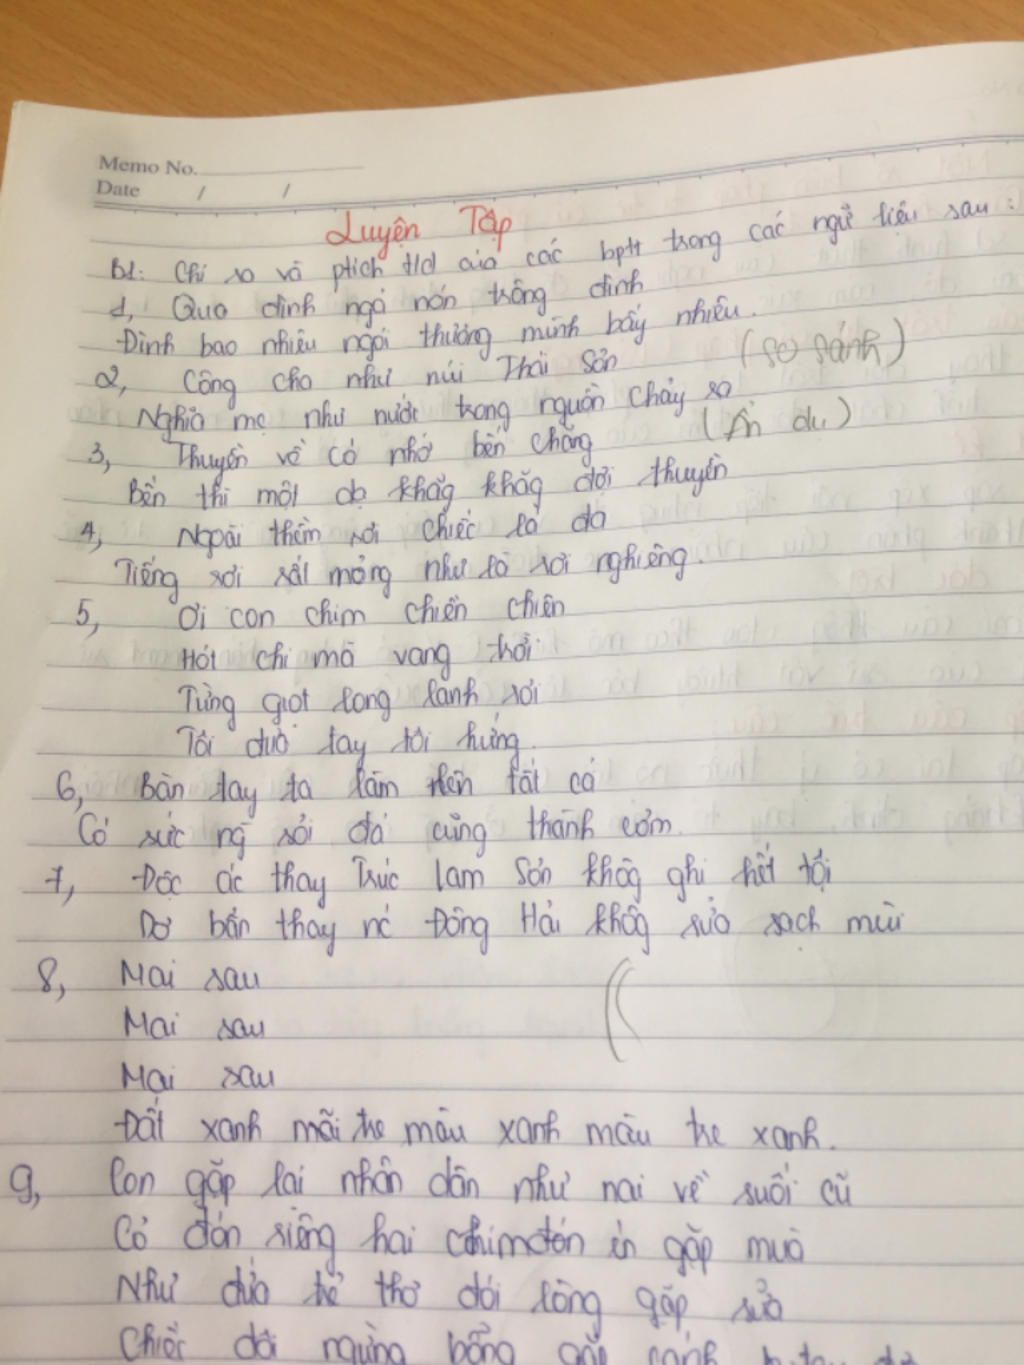 Memo No.
Date / /
Luyện Tập
B1: Chỉ ra và ptích t/d của các bptt trong các ngữ liệu sau:
1, Qua đình ngả nón trông đình
Đình bao nhiêu ngói thương mình bấy nhiêu.
2, Công cha như núi Thái Sơn (so sánh)
Nghĩa mẹ như nước trong nguồn chảy ra
3, Thuyền về có nhớ bến chăng (Ẩn dụ)
Bến thì một dạ khăg khăg đợi thuyền
4, Ngoài thềm rơi chiếc lá đa
Tiếng rơi rất mỏng như là rơi nghiêng.
5, Ơi con chim chiền chiện
Hót chi mà vang trời
Từng giọt long lanh rơi
Tôi đưa tay tôi hứng.
6, Bàn tay ta làm nên tất cả
Có sức ng̃ sỏi đá cũng thành cơm.
7, Độc ác thay Trúc Lam Sơn khôg ghi hết tội
Dơ bẩn thay nc Đông Hải khôg rửa sạch mùi
8, Mai sau
Mai sau
Mai sau
Đất xanh mãi tre màu xanh màu tre xanh.
9, Con gặp lại nhân dân như nai về suối cũ
Cỏ đón giêng hai chim én gặp mùa
Như đứa trẻ thơ đói lòng gặp sữa
Chiếc nôi ngừng bỗng gặp cánh tay đưa